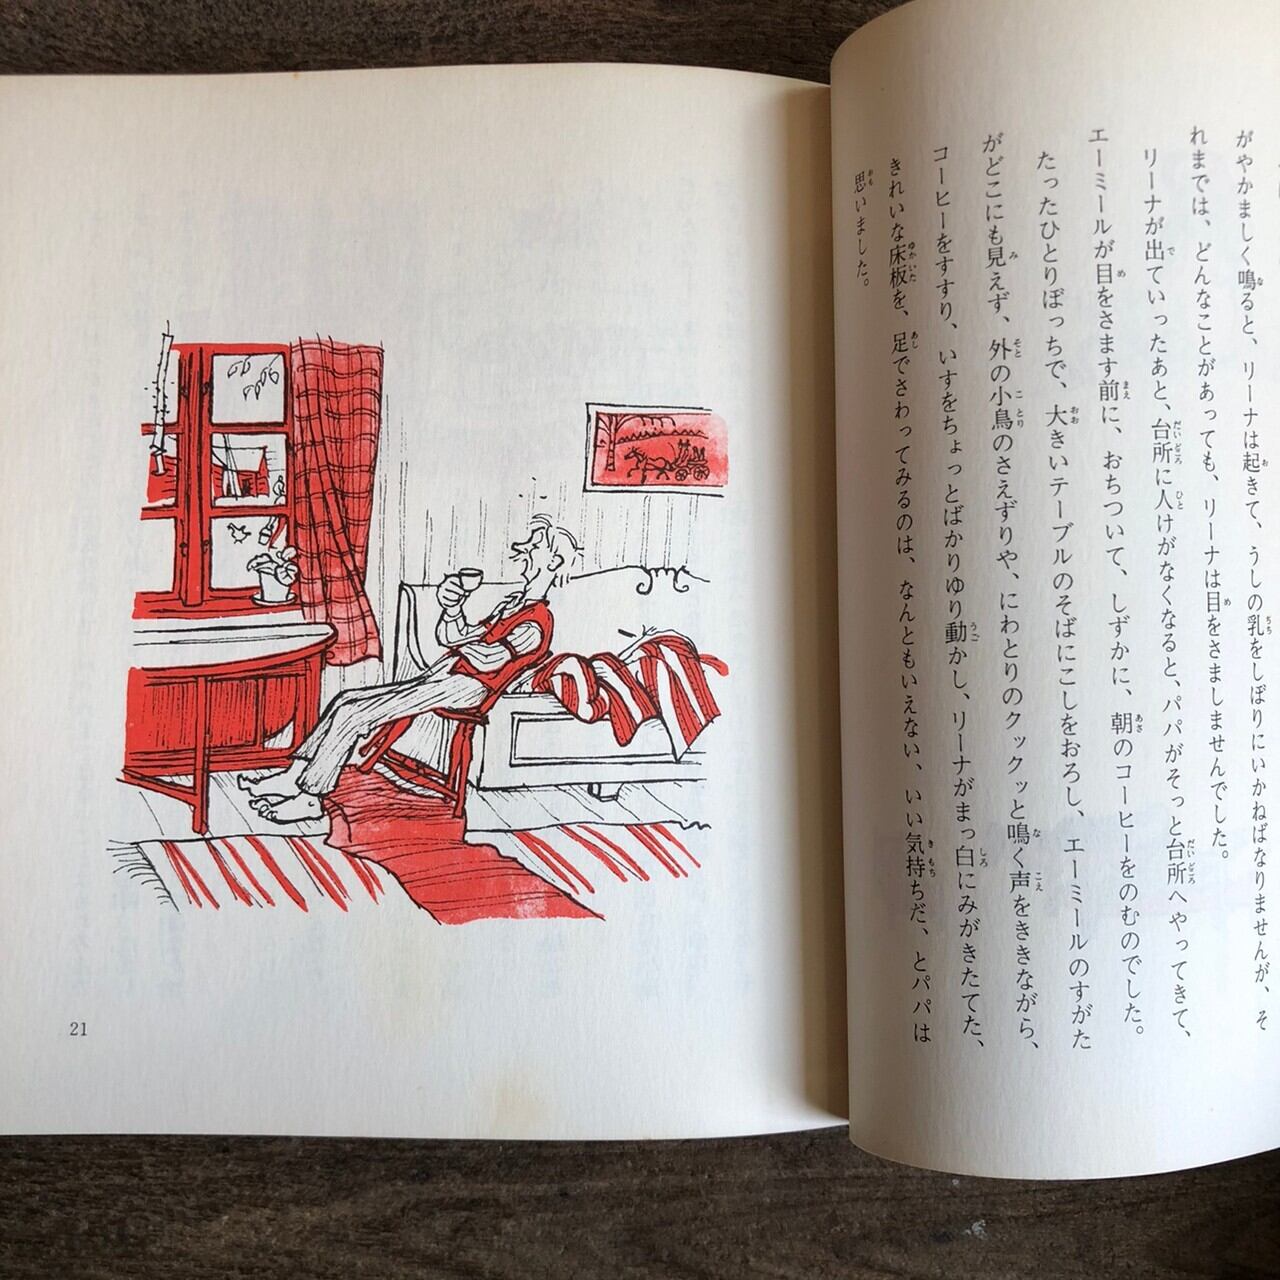 がやかましく鳴ると、リーナは起きて、うしの乳をしぼりにいかねばなりませんが、そ
れまでは、どんなことがあっても、リーナは目をさましませんでした。
リーナが出ていったあと、台所に人けがなくなると、パパがそっと台所へやってきて、
エーミールが目をさます前に、おちついて、しずかに、朝のコーヒーをのむのでした。
たったひとりぼっちで、大きいテーブルのそばにこしをおろし、エーミールのすがた
がどこにも見えず、外の小鳥のさえずりや、にわとりのクックッと鳴く声をききながら、
コーヒーをすすり、いすをちょっとばかりゆり動かし、リーナがまっ白にみがきたてた、
きれいな床板を、足でさわってみるのは、なんともいえない、いい気持ちだ、とパパは
思いました。
21